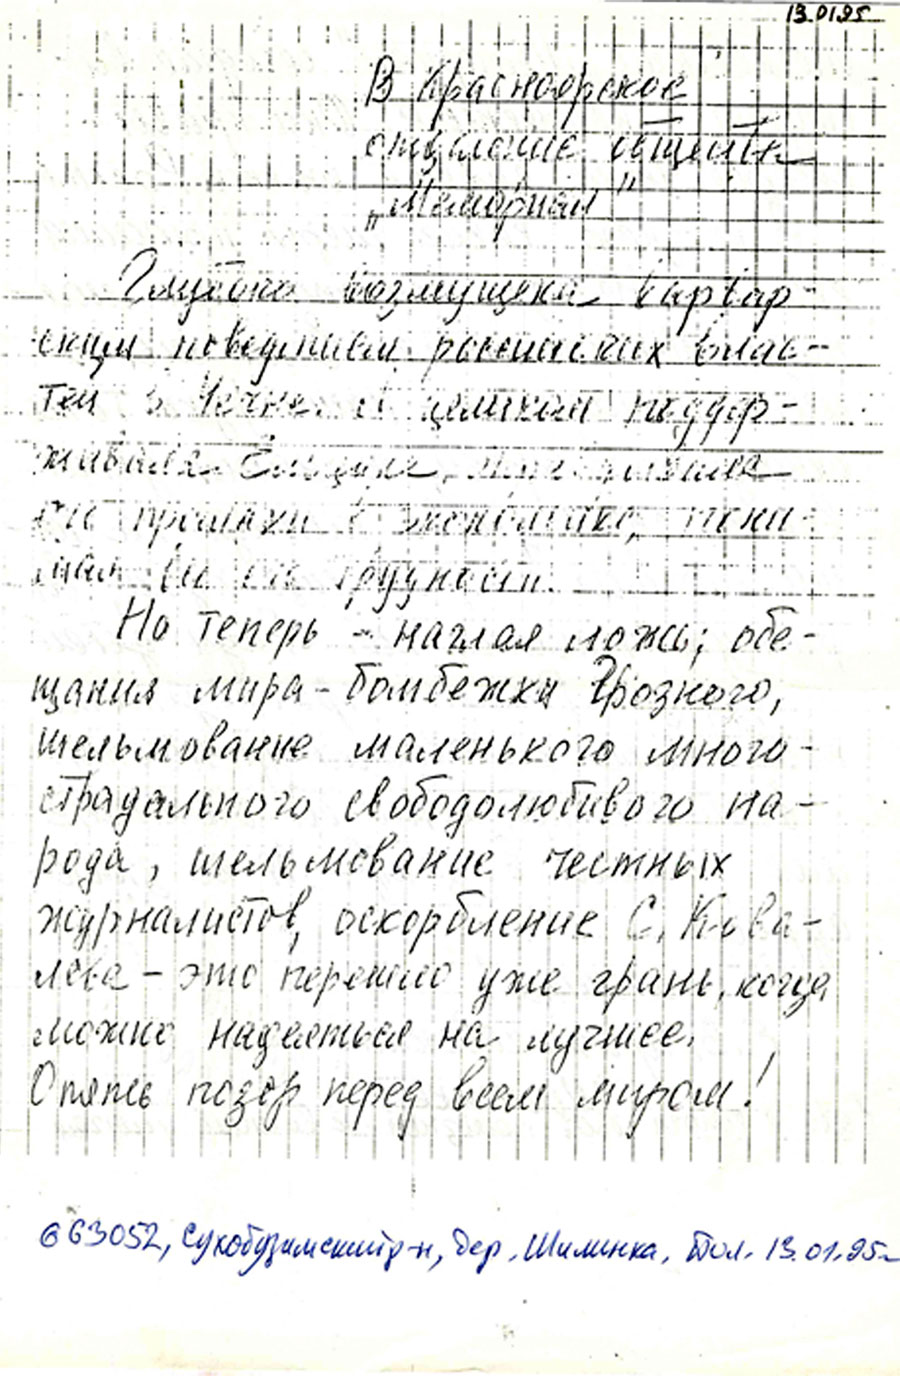 13.01.95
В Красноярское
отделение общества
„Мемориал"
Глубоко возмущена варвар-
ским поведением российских влас-
тей в Чечне. Я целиком поддер-
живала Ельцина,
его промахи в экономике, пони-
мая все его трудности.
Но теперь - наглая ложь; обе-
щания мира - бомбежки Грозного,
шельмование маленького много-
страдального свободолюбивого на-
рода, шельмование честных
журналистов, оскорбление С. Кова-
лева - это перешло уже грань, когда
можно надеяться на лучшее.
Опять позор перед всем миром!
663052, Сухобузимский р-н, дер. Шилинка. 13.01.95